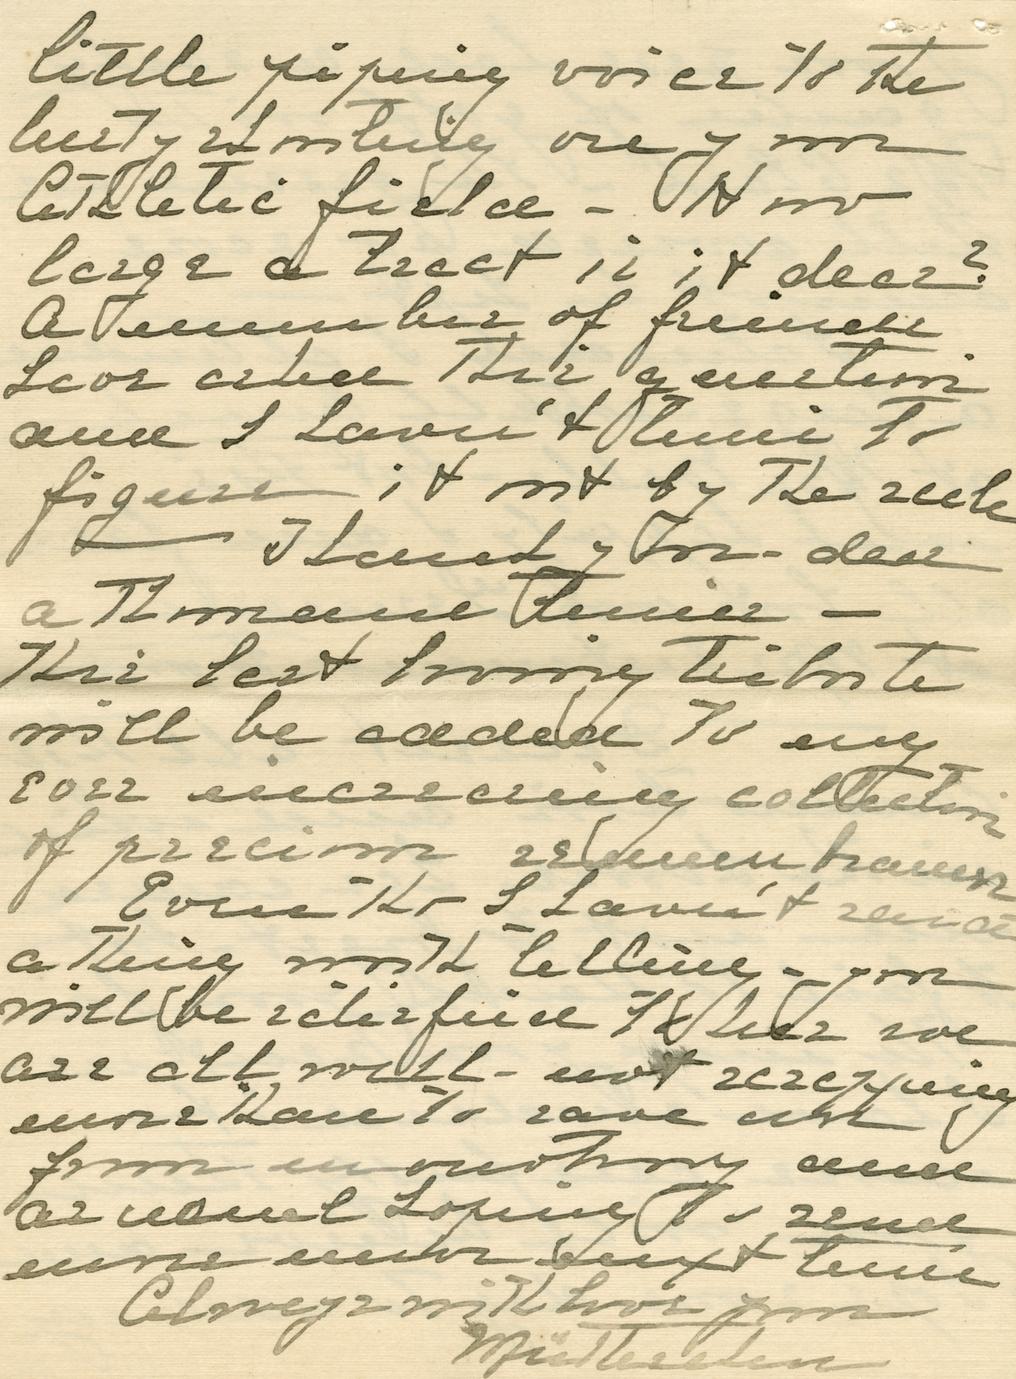 little piping voice to the
lusty shouting on your
Athletic field - How
large a tract is it dear?
A number of friends
have asked this question
and I haven't time to
figure it out by the rule
Thank you - dear
a thousand times -
this last loving tribute
will be added to my
ever increasing collection
of precious remembrances
Even tho I haven't said
a thing worth telling - you
will be satisfied that we
are all well - not scrapping
more than to save us
from monotony and
as usual hoping to send
more news next time
Always with love your
Mütterchen